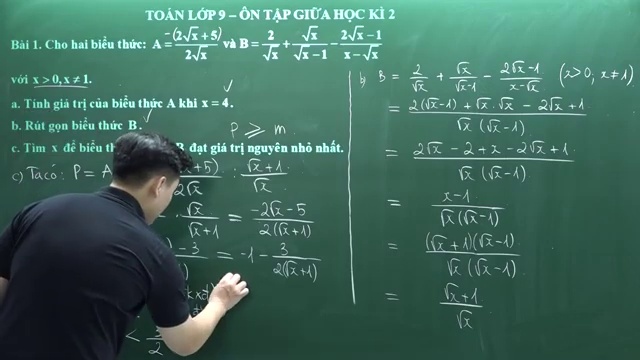 TOÁN LỚP 9 – ÔN TẬP GIỮA HỌC KÌ 2
Bài 1. Cho hai biểu thức: A = -(2√x + 5)/(2√x) và B = 2/√x + √x/(√x - 1) - (2√x - 1)/(x - √x)
với x > 0, x ≠ 1.
a. Tính giá trị của biểu thức A khi x = 4.
b. Rút gọn biểu thức B.
P ≥ m
c. Tìm x để biểu B đạt giá trị nguyên nhỏ nhất.
c) Ta có: P = A
x + 5)/(2√x) : (√x + 1)/√x
. √x/(√x + 1) = (-2√x - 5)/(2(√x + 1))
- 3 = -1 - 3/(2(√x + 1))
<
b) B = 2/√x + √x/(√x-1) - (2√x-1)/(x-√x) (x>0; x≠1)
= (2(√x-1) + √x.√x - 2√x + 1)/(√x(√x-1))
= (2√x - 2 + x - 2√x + 1)/(√x(√x-1))
= (x-1)/(√x(√x-1))
= ((√x+1)(√x-1))/(√x(√x-1))
= (√x+1)/√x